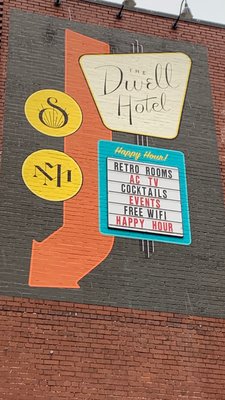 THE
Dwell
Hotel
Happy Hour!
RETRO ROOMS
AC TV
COCKTAILS
EVENTS
FREE WIFI
HAPPY HOUR